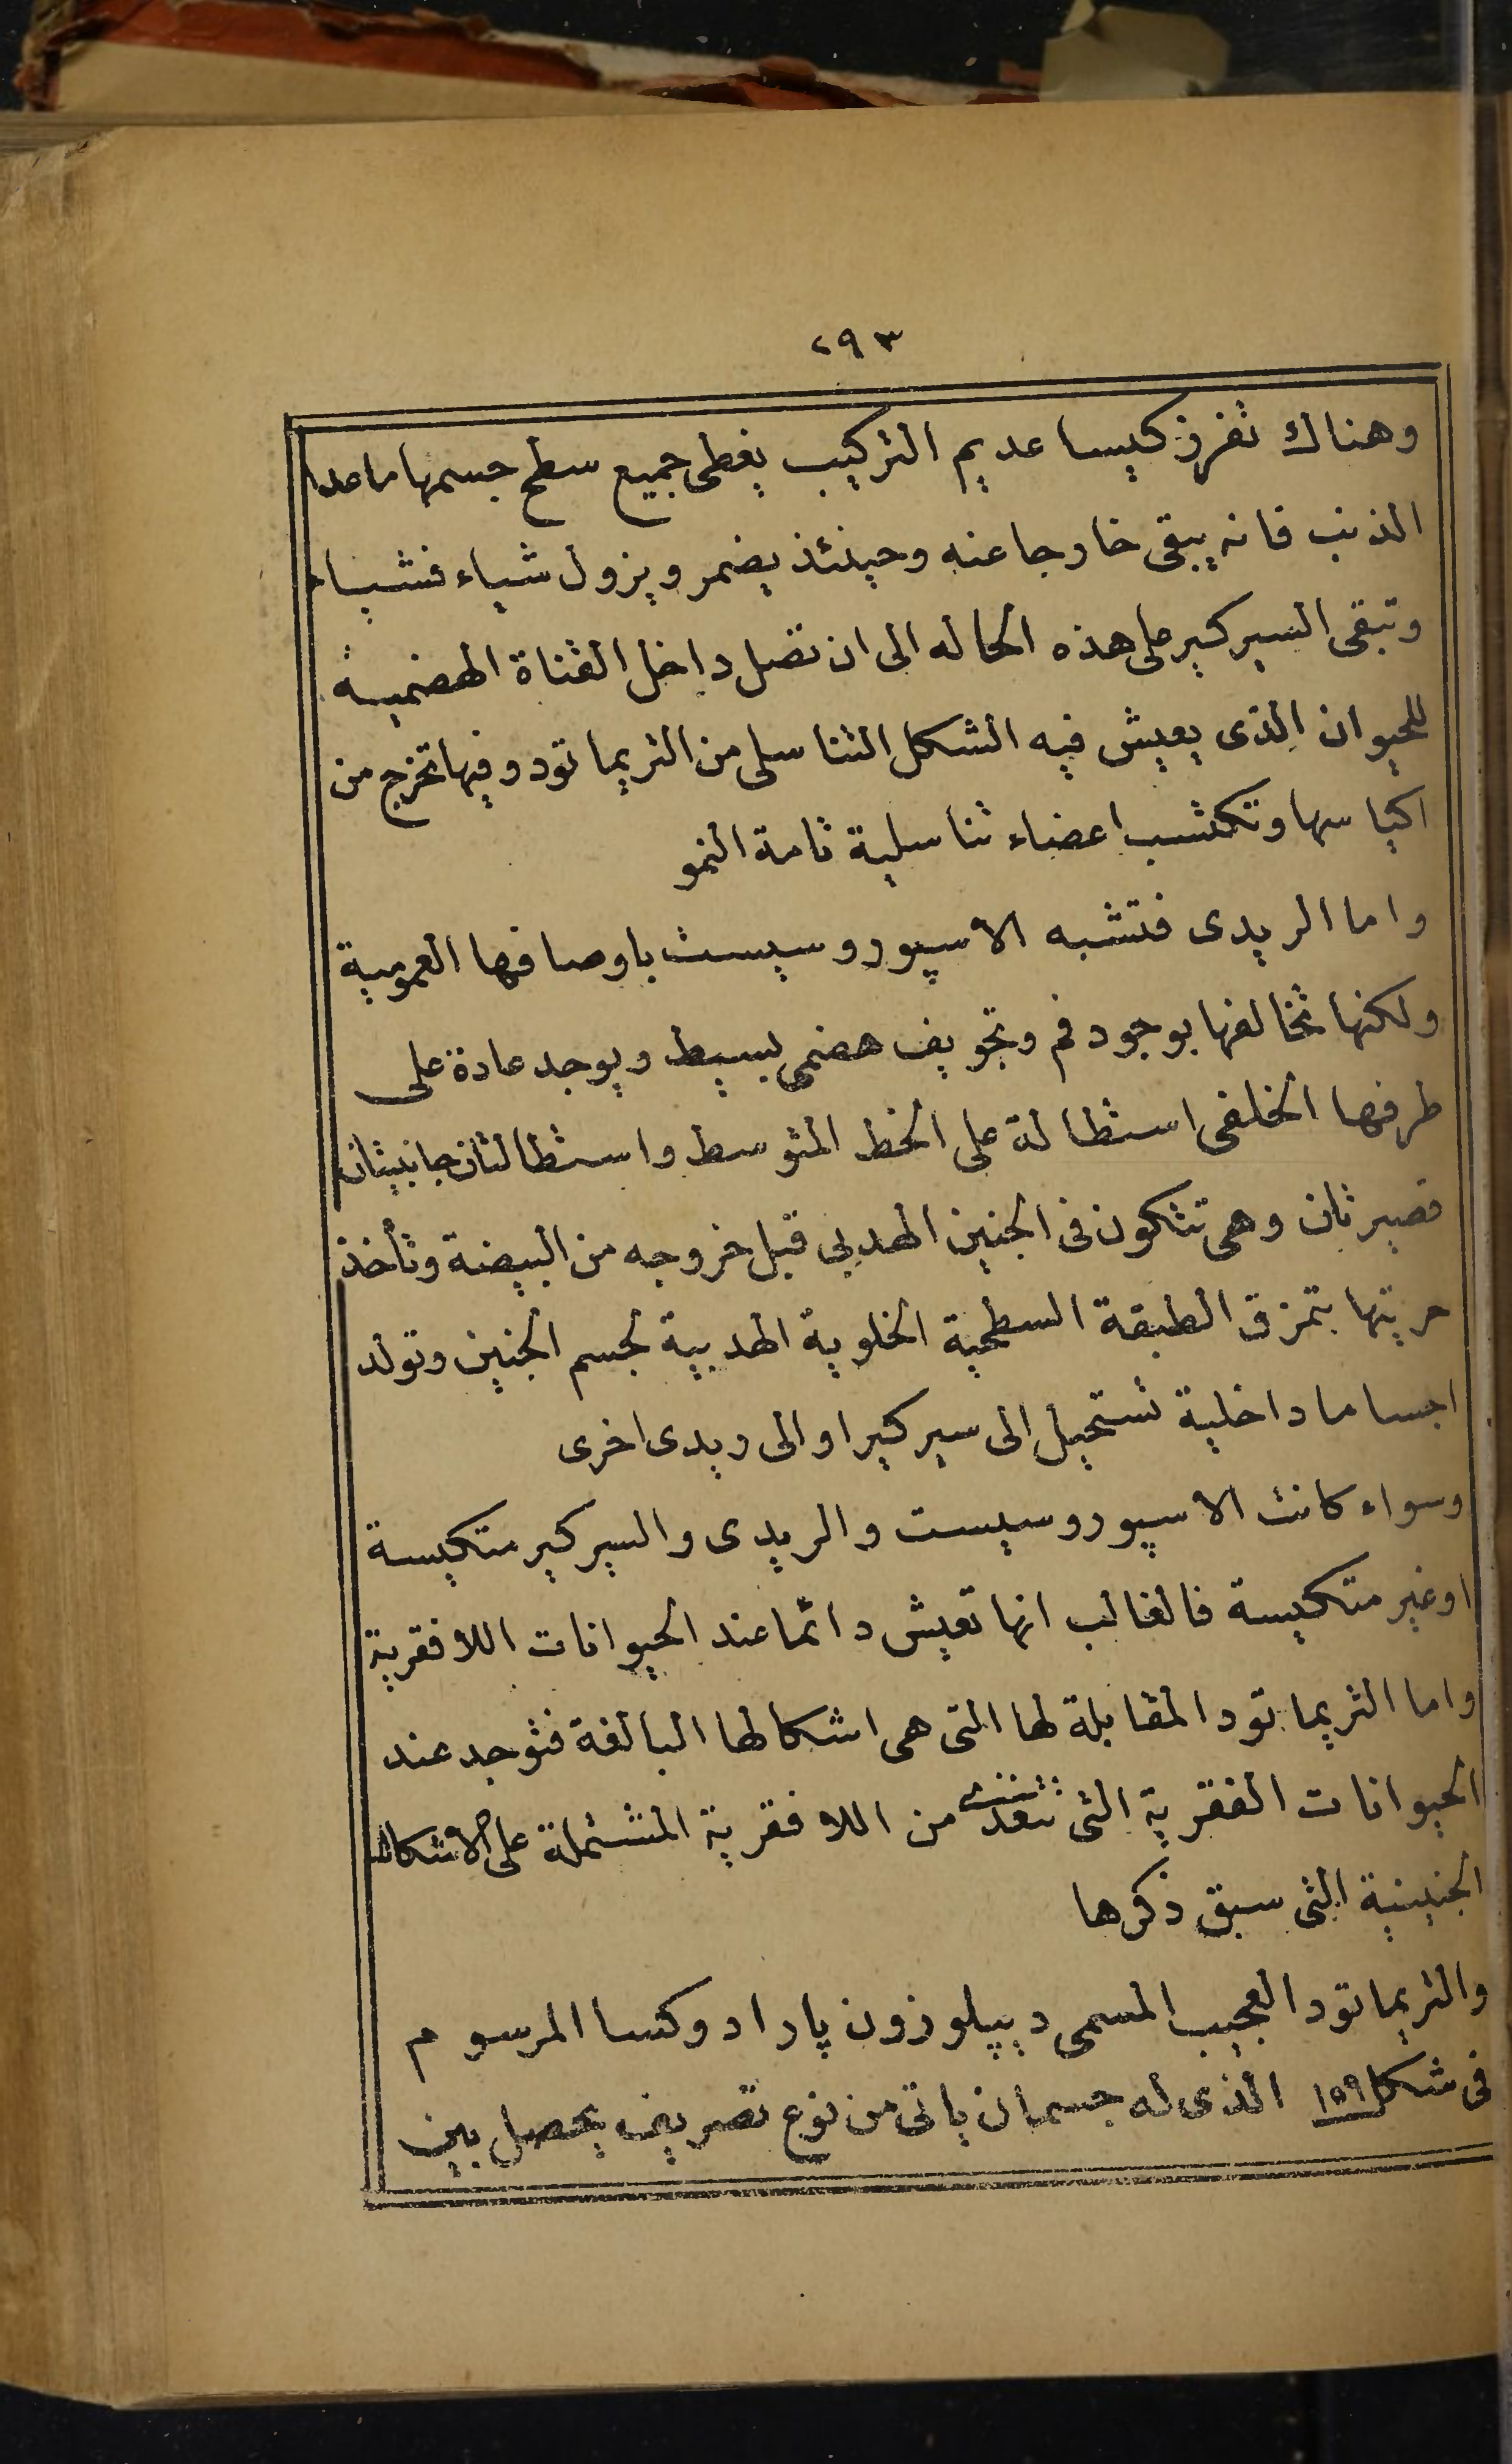 ٢٩٣
وهناك تفرز كيسا عديم التركيب يغطى جميع سطح جسمها ماعدا
الذنب فانه يبقى خارجا عنه وحينئذ يضمر ويزول شياء فشياء
وتبقى السيركير على هذه الحاله الى ان تصل داخل القناة الهضمية
للحيوان الذى يعيش فيه الشكل التناسلى من التريماتود وفيها تخرج من
اكياسها وتكتسب اعضاء تناسلية تامة النمو
واما الريدى فتشبه الاسپوروسيست باوصافها العمومية
ولكنها تخالفها بوجود فم وتجويف هضمى بسيط ويوجد عادة على
طرفها الخلفى استطالة على الخط المتوسط واستطالتان جانبيتان
قصيرتان وهى تتكون فى الجنين الهدبى قبل خروجه من البيضة وتأخذ
حريتها بتمزق الطبقة السطحية الخلوية الهدبية لجسم الجنين وتولد
اجساما داخلية تستحيل الى سيركير او الى ريدى اخرى
وسواء كانت الاسپوروسيست والريدى والسيركير متكيسة
او غير متكيسة فالغالب انها تعيش دائما عند الحيوانات اللافقرية
واما التريماتود المقابلة لها التى هى اشكالها البالغة فتوجد عند
الحيوانات الفقرية التى تتغذى من اللافقرية المشتملة على الاشكال
الجنينية التى سبق ذكرها
والتريماتود العجيب المسمى ديپلوزون پارادوكسا المرسوم
فى شكل ١٥٩ الذى له جسمان ياتى من نوع تصريف يحصل بين